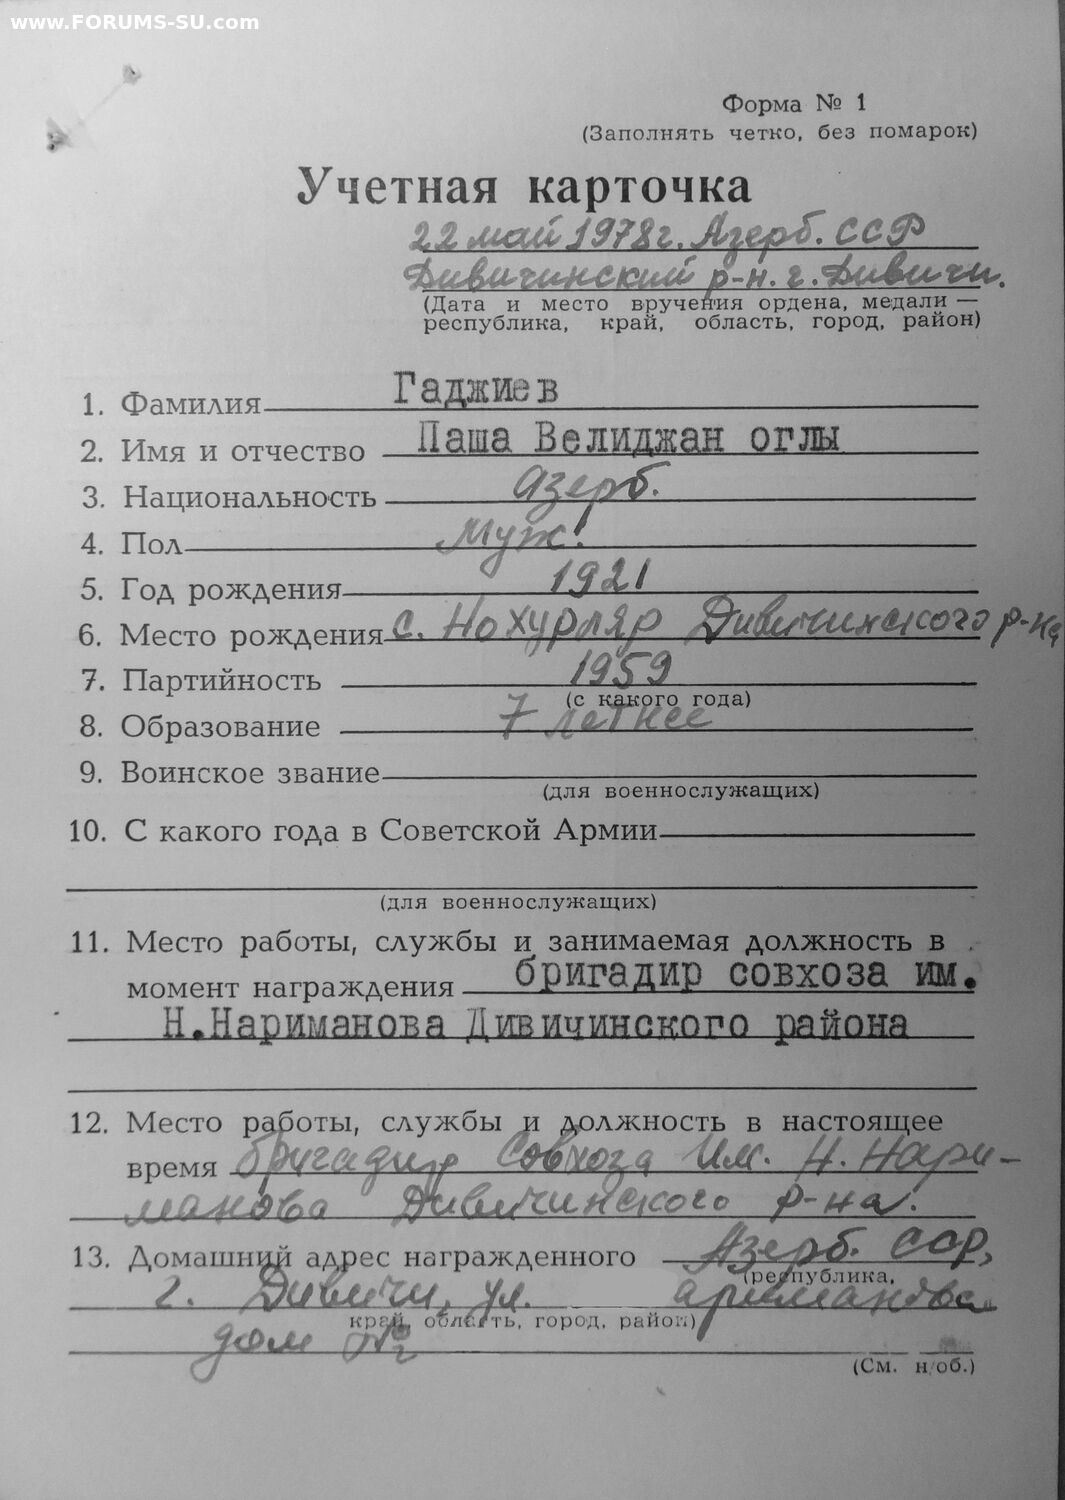 www.FORUMS-SU.com
Форма № 1
(Заполнять четко, без помарок)
Учетная карточка
22 май 1978г. Азерб. ССР
Дивичинский р-н. г. Дивичи.
(Дата и место вручения ордена, медали —
республика, край, область, город, район)
1. Фамилия Гаджиев
2. Имя и отчество Паша Велиджан оглы
3. Национальность Азерб.
4. Пол Муж.
5. Год рождения 1921
6. Место рождения с. Нохурляр Дивичинского р-на
7. Партийность 1959
(с какого года)
8. Образование 7 летнее
9. Воинское звание
(для военнослужащих)
10. С какого года в Советской Армии
(для военнослужащих)
11. Место работы, службы и занимаемая должность в
момент награждения бригадир совхоза им.
Н.Нариманова Дивичинского района
12. Место работы, службы и должность в настоящее
время бригадир Совхоза Им. Н. Нари-
манова Дивичинского р-на.
13. Домашний адрес награжденного Азерб. ССР,
(республика,
г. Дивичи, ул. ариманова
край, область, город, район)
дом №
(См. н/об.)